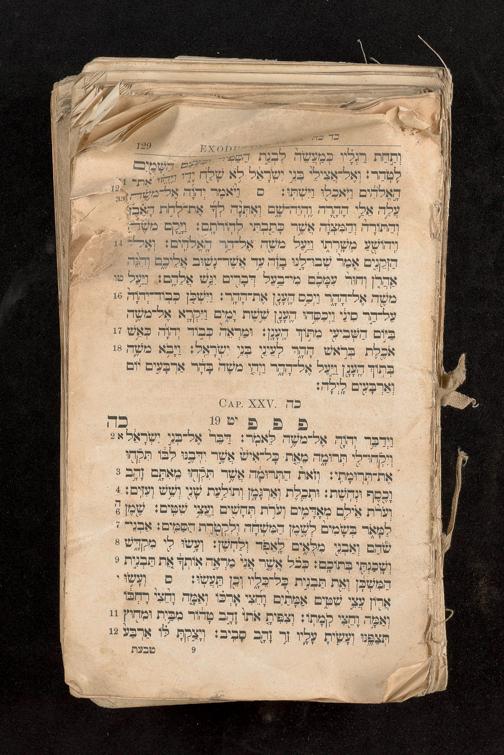 129 EXODU
וְתַחַת רַגְלָיו כְּמַעֲשֵׂה לִבְנַת הַסַּפִּיר וּכְעֶצֶם הַשָּׁמַיִם
לָטֹהַר׃ וְאֶל־אֲצִילֵי בְּנֵי יִשְׂרָאֵל לֹא שָׁלַח יָדוֹ וַיֶּחֱזוּ אֶת־
12 הָאֱלֹהִים וַיֹּאכְלוּ וַיִּשְׁתּוּ׃ ס וַיֹּאמֶר יְהוָֹה אֶל־מֹשֶׁה
עֲלֵה אֵלַי הָהָרָה וֶהְיֵה־שָׁם וְאֶתְּנָה לְךָ אֶת־לֻחֹת הָאֶבֶן
וְהַתּוֹרָה וְהַמִּצְוָה אֲשֶׁר כָּתַבְתִּי לְהוֹרֹתָם׃ וַיָּקָם מֹשֶׁה
14 וִיהוֹשֻׁעַ מְשָׁרְתוֹ וַיַּעַל מֹשֶׁה אֶל־הַר הָאֱלֹהִים׃ וְאֶל־
הַזְּקֵנִים אָמַר שְׁבוּ־לָנוּ בָזֶה עַד אֲשֶׁר־נָשׁוּב אֲלֵיכֶם וְהִנֵּה
טו אַהֲרֹן וְחוּר עִמָּכֶם מִי־בַעַל דְּבָרִים יִגַּשׁ אֲלֵהֶם׃ וַיַּעַל
16 מֹשֶׁה אֶל־הָהָר וַיְכַס הֶעָנָן אֶת־הָהָר׃ וַיִּשְׁכֹּן כְּבוֹד־יְהוָֹה
עַל־הַר סִינַי וַיְכַסֵּהוּ הֶעָנָן שֵׁשֶׁת יָמִים וַיִּקְרָא אֶל־מֹשֶׁה
17 בַּיּוֹם הַשְּׁבִיעִי מִתּוֹךְ הֶעָנָן׃ וּמַרְאֵה כְּבוֹד יְהוָֹה כְּאֵשׁ
18 אֹכֶלֶת בְּרֹאשׁ הָהָר לְעֵינֵי בְּנֵי יִשְׂרָאֵל׃ וַיָּבֹא מֹשֶׁה
בְּתוֹךְ הֶעָנָן וַיַּעַל אֶל־הָהָר וַיְהִי מֹשֶׁה בָּהָר אַרְבָּעִים יוֹם
וְאַרְבָּעִים לָיְלָה׃
CAP. XXV. כה
כה פ פ פ יט 19
2 א וַיְדַבֵּר יְהוָֹה אֶל־מֹשֶׁה לֵּאמֹר׃ דַּבֵּר אֶל־בְּנֵי יִשְׂרָאֵל
וְיִקְחוּ־לִי תְּרוּמָה מֵאֵת כָּל־אִישׁ אֲשֶׁר יִדְּבֶנּוּ לִבּוֹ תִּקְחוּ
3 אֶת־תְּרוּמָתִי׃ וְזֹאת הַתְּרוּמָה אֲשֶׁר תִּקְחוּ מֵאִתָּם זָהָב
4 וָכֶסֶף וּנְחֹשֶׁת׃ וּתְכֵלֶת וְאַרְגָּמָן וְתוֹלַעַת שָׁנִי וְשֵׁשׁ וְעִזִּים׃
ה 6 וְעֹרֹת אֵילִם מְאָדָּמִים וְעֹרֹת תְּחָשִׁים וַעֲצֵי שִׁטִּים׃ שֶׁמֶן
7 לַמָּאֹר בְּשָׂמִים לְשֶׁמֶן הַמִּשְׁחָה וְלִקְטֹרֶת הַסַּמִּים׃ אַבְנֵי־
8 שֹׁהַם וְאַבְנֵי מִלֻּאִים לָאֵפֹד וְלַחֹשֶׁן׃ וְעָשׂוּ לִי מִקְדָּשׁ
9 וְשָׁכַנְתִּי בְּתוֹכָם׃ כְּכֹל אֲשֶׁר אֲנִי מַרְאֶה אוֹתְךָ אֵת תַּבְנִית
י הַמִּשְׁכָּן וְאֵת תַּבְנִית כָּל־כֵּלָיו וְכֵן תַּעֲשׂוּ׃ ס וְעָשׂוּ
אֲרוֹן עֲצֵי שִׁטִּים אַמָּתַיִם וָחֵצִי אָרְכּוֹ וְאַמָּה וָחֵצִי רָחְבּוֹ
11 וְאַמָּה וָחֵצִי קֹמָתוֹ׃ וְצִפִּיתָ אֹתוֹ זָהָב טָהוֹר מִבַּיִת וּמִחוּץ
12 תְּצַפֶּנּוּ וְעָשִׂיתָ עָלָיו זֵר זָהָב סָבִיב׃ וְיָצַקְתָּ לּוֹ אַרְבַּע
9 טבעת